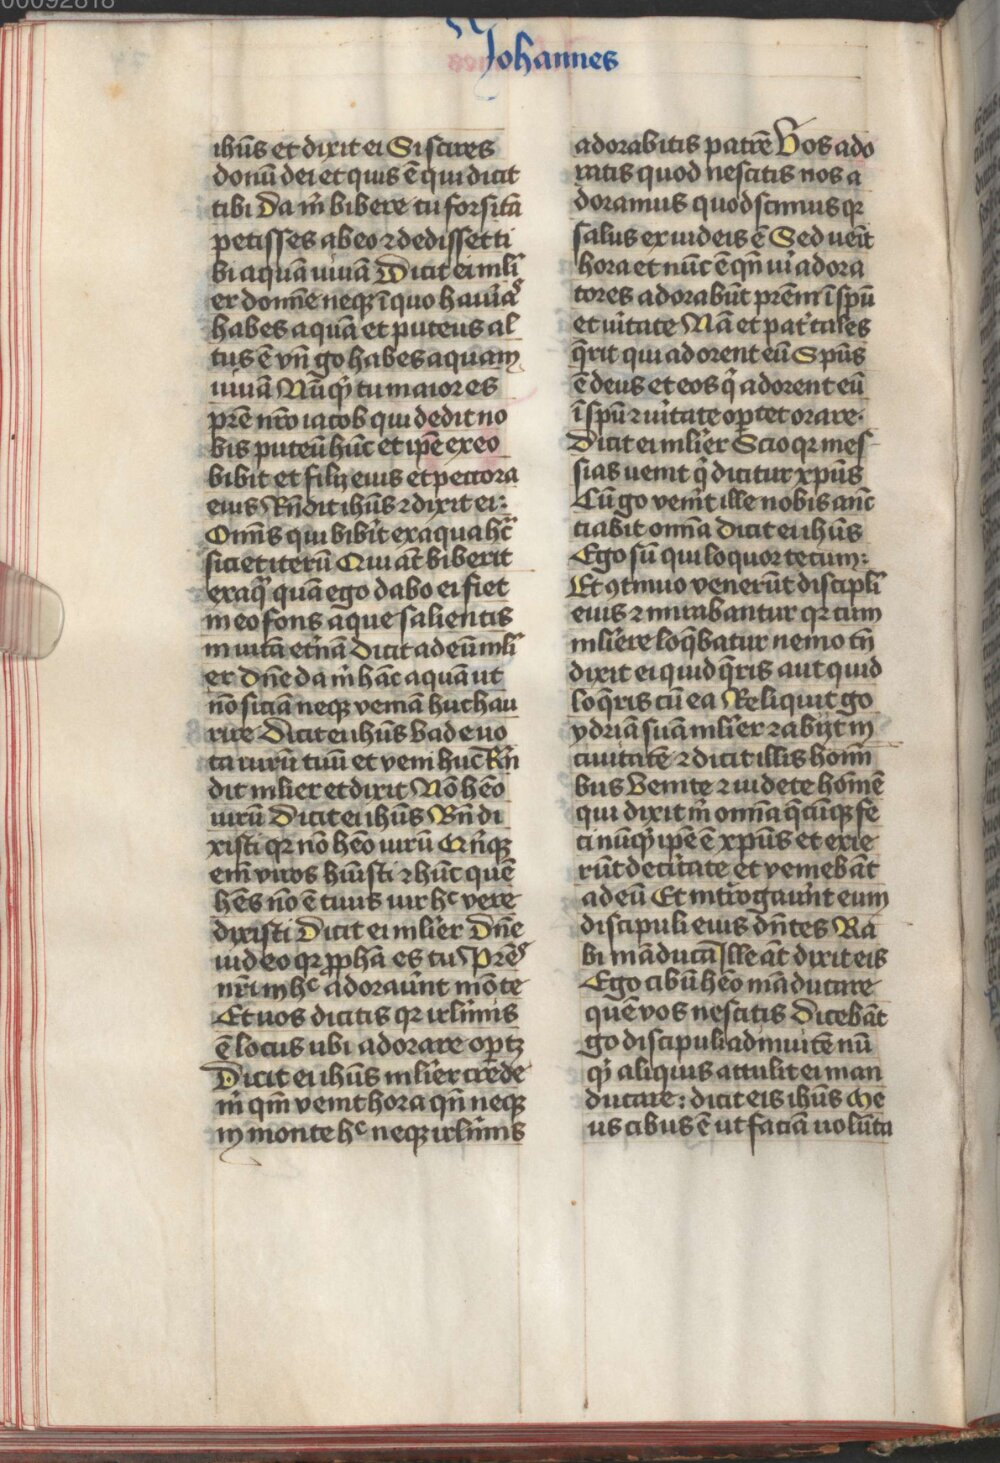 00092818
Johannes
ihūs et dixit ei Si scires
donū dei et quis ē qui dicit
tibi Da m̄ bibere tu forsitā
petisses ab eo ⁊ dedisset ti
bi aquā uiuā Dicit ei mli
er domīe neqꝫ ī quo hauriās
habes aquā et puteus al
tus ē vn̄ go habes aquam
uiuā Nūqͥd tu maior es
prē nrō iacob qui dedit no
bis puteū hūc et ipē ex eo
bibit et filij eius et peccora
eius Rn̄dit ihūs ⁊ dixit ei:
Omīs qui bibit ex aqua hac
siciet iterū Qui aūt biberit
ex aqͣ quā ego dabo ei fiet
in eo fons aque salientis
in uitā et̄nā Dicit ad eū mli
er Dn̄e da m̄ hāc aquā ut
nō siciā neqꝫ veniā huc hau
rire Dicit ei ihūs Vade uo
ca uirū tuū et veni huc Rn̄
dit mlier et dixit Nō hēo
uirū Dicit ei ihūs Bn̄ di
xisti qꝛ nō hēo uirū Qͥnqꝫ
em̄ viros huīsti ⁊ hūc quē
hēs nō ē tuus uir hᶜ vere
dixisti Dicit ei mlier Dn̄e
uideo qꝛ ꝓphā es tu Prēs
nrī in hᶜ adorauūt mōte
Et uos dicitis qꝛ irlīmis
ē locus ubi adorare oportꝫ
Dicit ei ihūs mlier crēde
m̄ qm̄ venit hora qn̄ neqꝫ
in monte hᶜ neqꝫ irlīmis
adorabitis patrē Vos ado
ratis quod nescitis nos a
doramus quod scimus qꝛ
salus ex iudeis ē Sed ueīt
hora et nūc ē qn̄ ui adora
tores adorabūt prēm ī spū
et ūitate Nā et pat̄ tales
qͥrit qui adorent eū Spūs
ē deus et eos qͥ adorent eū
ī spū ⁊ ūitate oportet orare.
Dicit ei mlier Scio qꝛ mes
sias venit qͥ dicitur xpūs
Cū go venit̄ ille nobis anūc
ciabit omīa Dicit ei ihūs
Ego sū qui loquor tecum:
Et ꝯtinuo venerūt discipli
eius ⁊ mirabantur qꝛ cum
mliere loqͥbatur nemo tn̄
dixit ei quid qͥris aut quid
loqͥris cū ea Reliquit go
ydriā suā mlier ⁊ abijt in
ciuitatē ⁊ dicit illis homī
bus Venite ⁊ uidete homēē
qui dixit m̄ omīa qͥcūqꝫ fe
ci nūqͥd ipē ē xpūs et exie
rūt de ciitate et veniebāt
ad eū Et int̄rogauūt eum
discipuli eius dn̄tes Ra
bi māduca Ille aūt dixit eis
Ego cibū hēo māducare
quē vos nescitis Dicebāt
go discipuli ad inuicē nū
qͥd aliquis attulit ei man
ducare: dicit eis ihūs Me
us cibus ē ut faciā uolūta